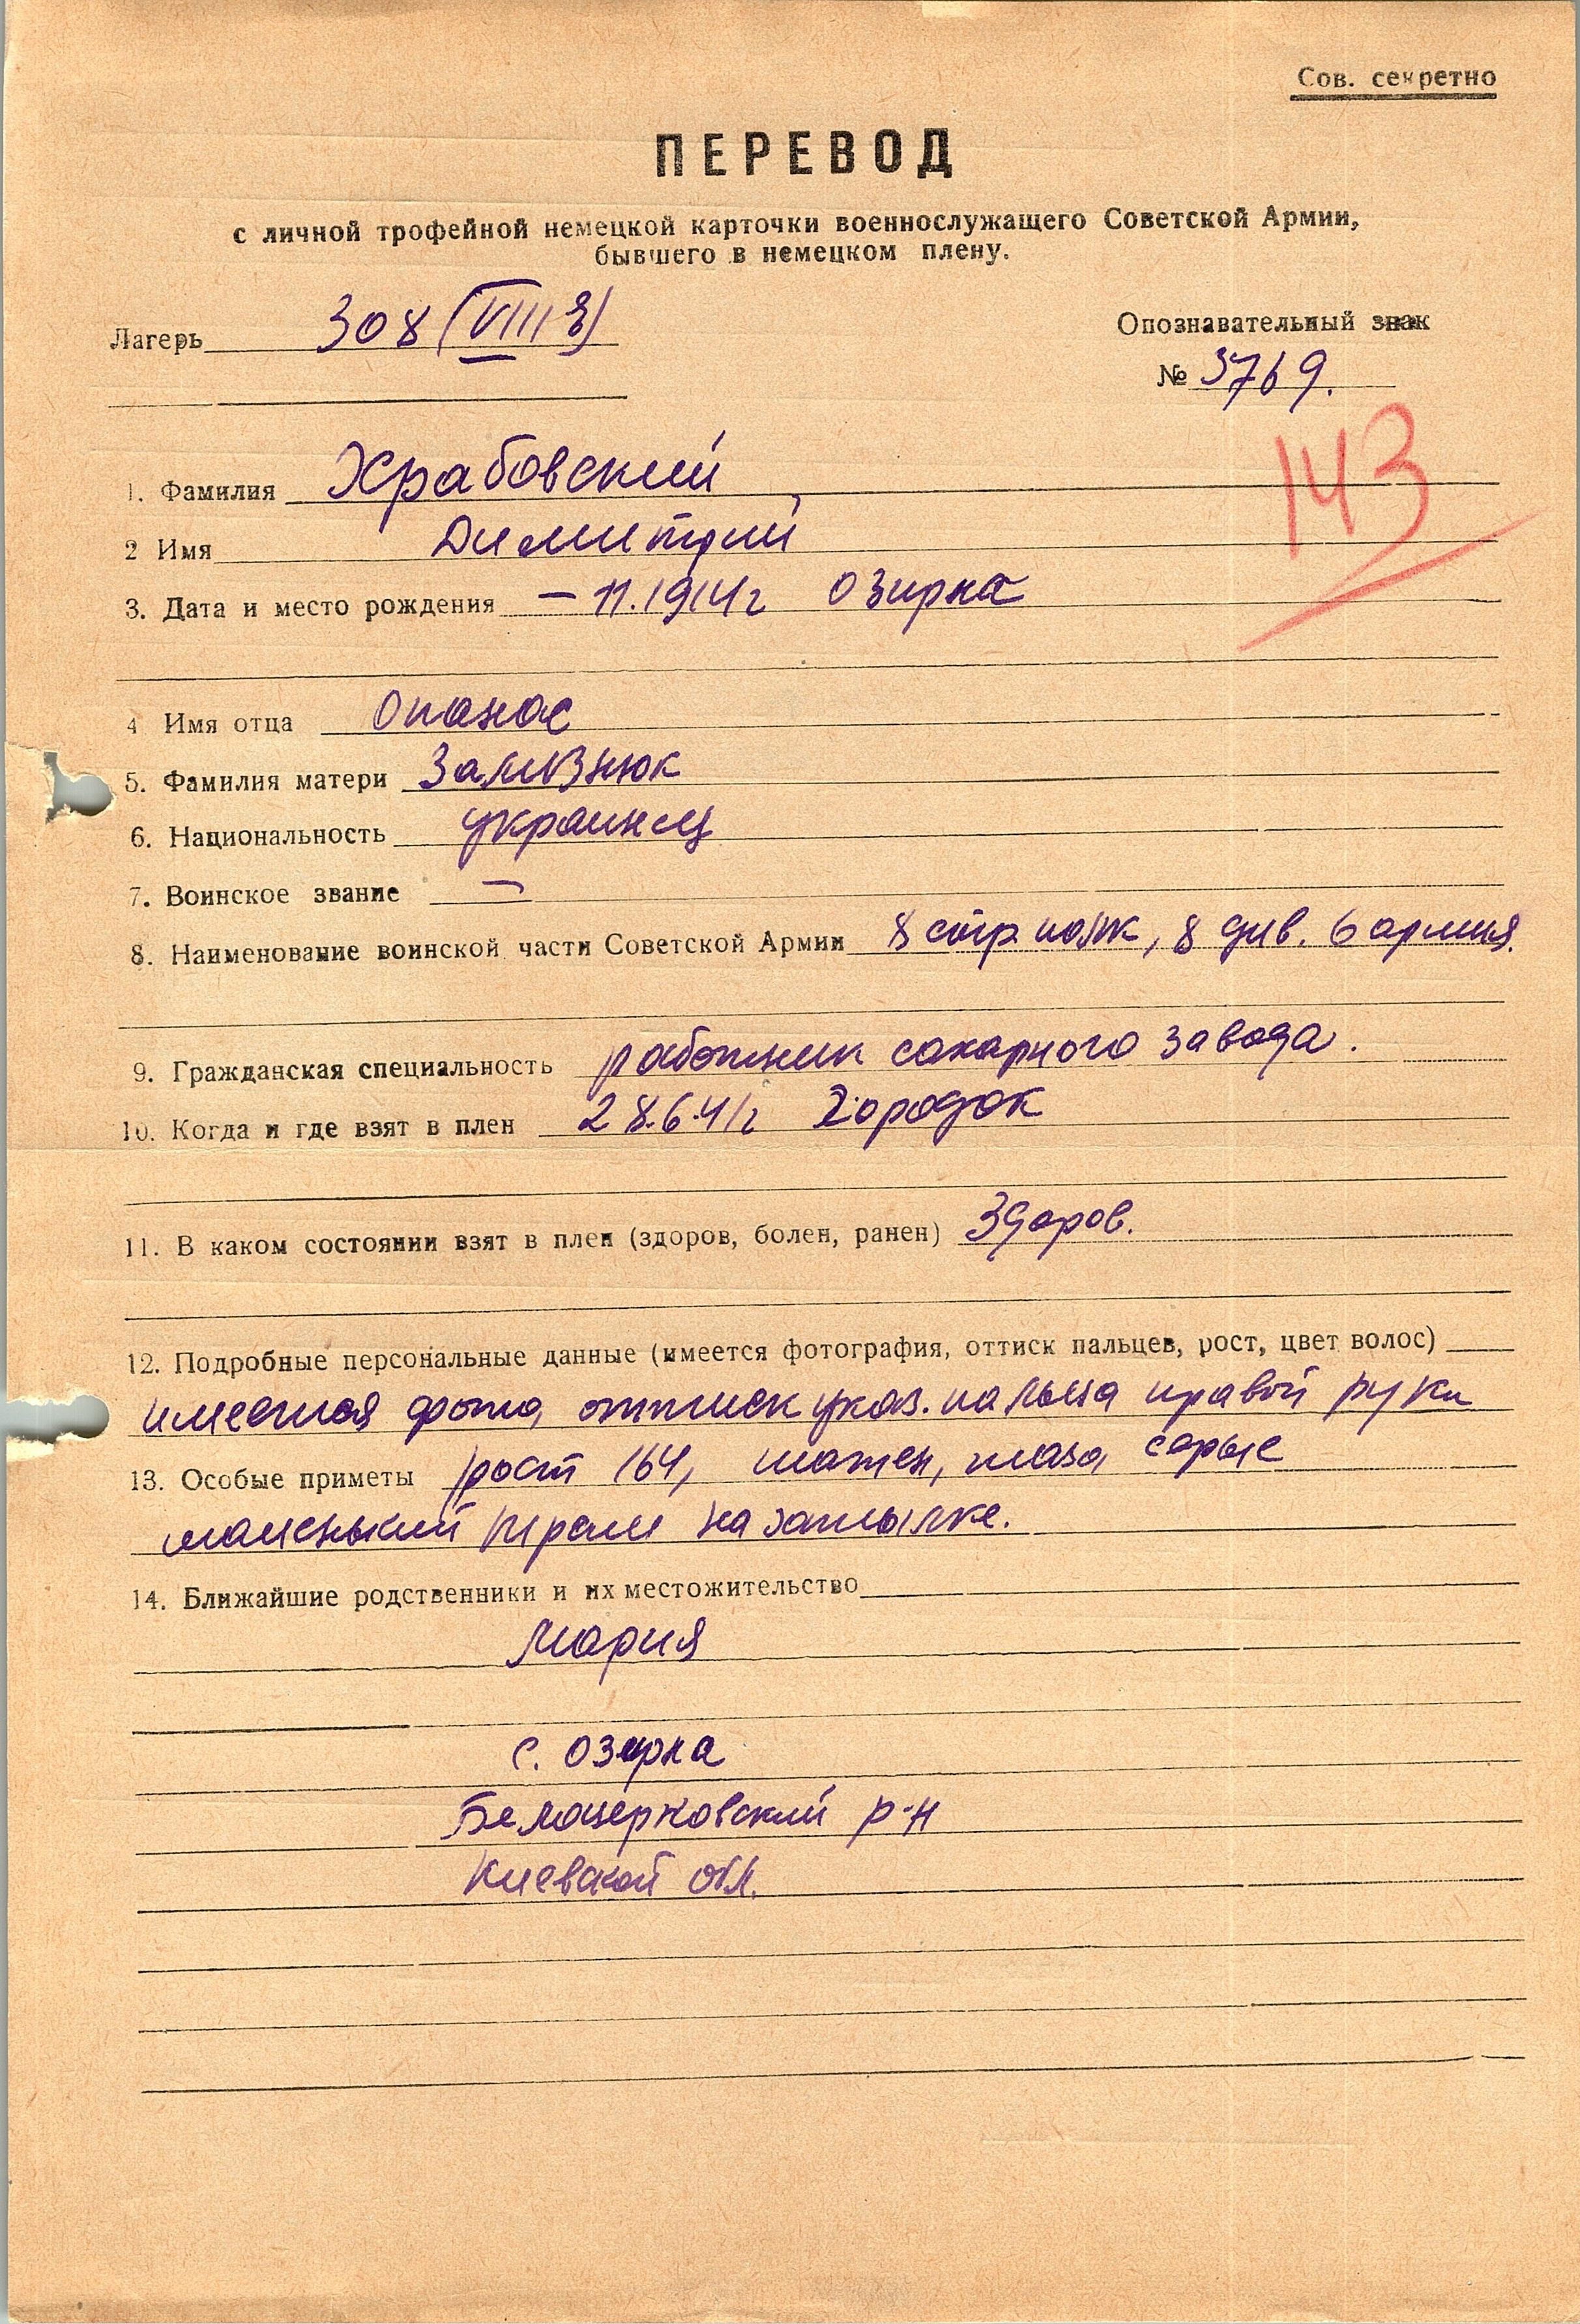 Сов. секретно
ПЕРЕВОД
с личной трофейной немецкой карточки военнослужащего Советской Армии,
бывшего в немецком плену.
Лагерь 308 (VIII Е)
Опознавательный знак
№ 3769.
143
1. Фамилия Храбовский
2 Имя Димитрий
3. Дата и место рождения – 11.1914г Озирка
4 Имя отца Опанас
5. Фамилия матери Зализнюк
6. Национальность украинец
7. Воинское звание —
8. Наименование воинской части Советской Армии 8 стр. полк, 8 див. 6 армия.
9. Гражданская специальность работник сахарного завода.
10. Когда и где взят в плен 28.6.41г Городок
11. В каком состоянии взят в плен (здоров, болен, ранен) Здоров.
12. Подробные персональные данные (имеется фотография, оттиск пальцев, рост, цвет волос)
имеется фото, оттиск указ. пальца правой руки
13. Особые приметы рост 164, шатен, глаза серые
маленький шрам на затылке.
14. Ближайшие родственники и их местожительство
Мария
с. Озирка
Белоцерковский р-н
Киевской обл.